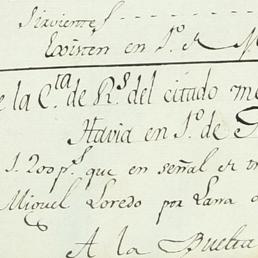 Sirvientes
Existen en 1º de
e la C.ta de R.s del citado me
Havia en 1º de
1.200 p.s que en señal de tr
Miguel Loredo por Lana
A la Buelta